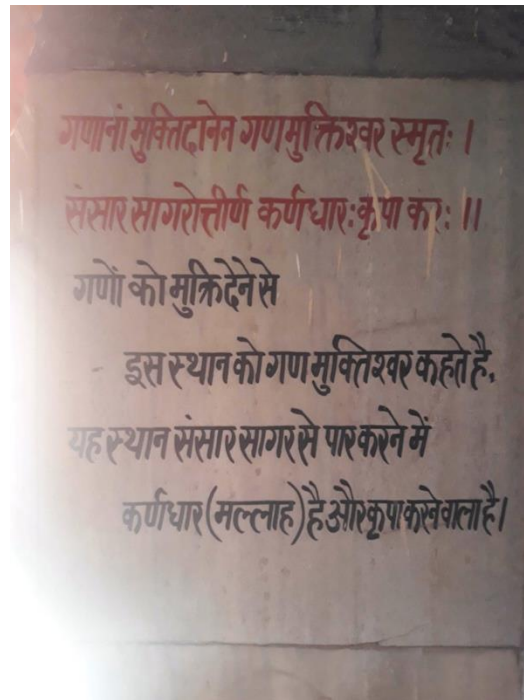 गणानां मुक्तिदानेन गणमुक्तिश्वर स्मृतः ।
संसार सागरोत्तीर्ण कर्णधारःकृपा करः ॥
गणों को मुक्ति देने से
इस स्थान को गण मुक्तिश्वर कहते है,
यह स्थान संसार सागर से पार करने में
कर्णधार (मल्लाह) है और कृपा करने वाला है।